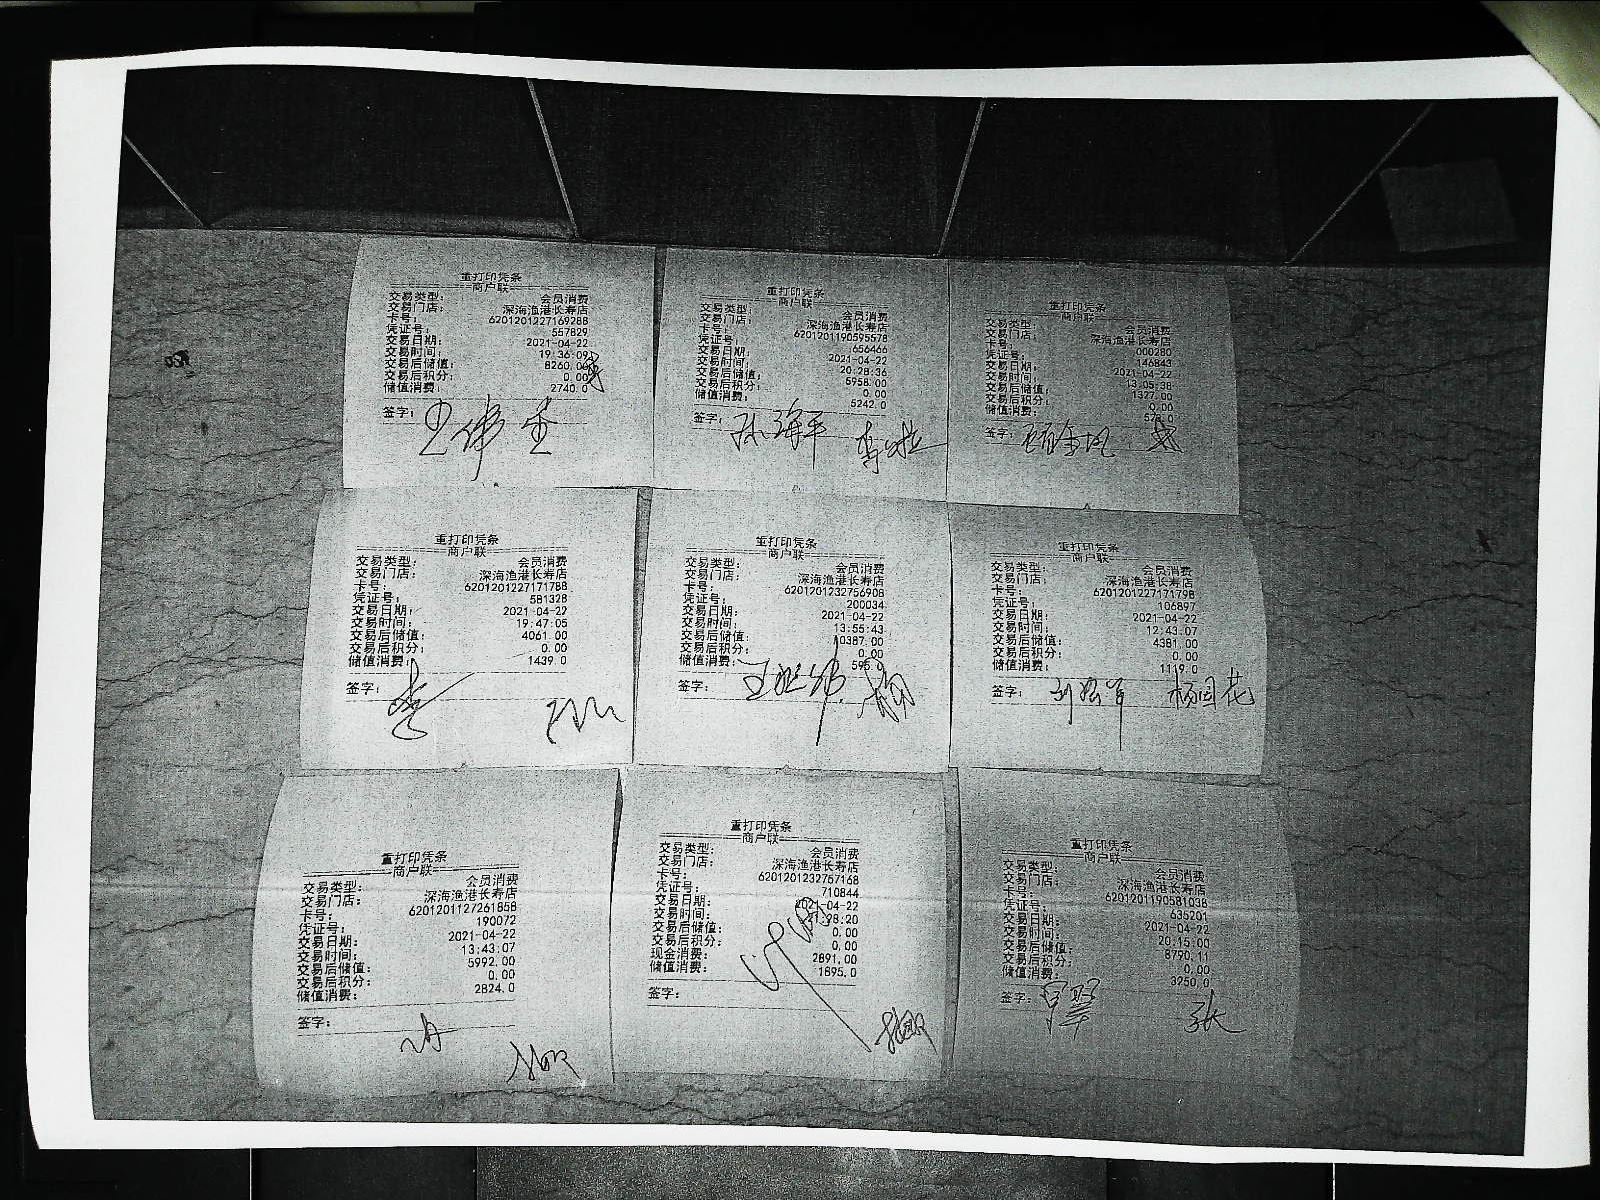 重打印凭条
商户联
交易类型： 会员消费
交易门店： 深海渔港长寿店
卡号： 6201201227169288
凭证号： 557829
交易日期： 2021-04-22
交易时间： 19:36:09
交易后储值： 8260.00
交易后积分： 0.00
储值消费： 2740.0
签字：
重打印凭条
商户联
交易类型： 会员消费
交易门店： 深海渔港长寿店
卡号： 6201201190595578
凭证号： 656466
交易日期： 2021-04-22
交易时间： 20:28:36
交易后储值： 5958.00
交易后积分： 0.00
储值消费： 5242.0
签字： 孙海平
重打印凭条
商户联
交易类型： 会员消费
交易门店： 深海渔港长寿店
卡号： 000280
凭证号： 146843
交易日期： 2021-04-22
交易时间： 13:05:38
交易后储值： 1327.00
交易后积分： 0.00
储值消费：
签字：
重打印凭条
商户联
交易类型： 会员消费
交易门店： 深海渔港长寿店
卡号： 6201201227171788
凭证号： 581328
交易日期： 2021-04-22
交易时间： 19:47:05
交易后储值： 4061.00
交易后积分： 0.00
储值消费： 1439.0
签字：
重打印凭条
商户联
交易类型： 会员消费
交易门店： 深海渔港长寿店
卡号： 6201201232756908
凭证号： 200034
交易日期： 2021-04-22
交易时间： 13:55:43
交易后储值： 0387.00
交易后积分： 0.00
储值消费： 595.0
签字： 杨
重打印凭条
商户联
交易类型： 会员消费
交易门店： 深海渔港长寿店
卡号： 6201201227171798
凭证号： 106897
交易日期： 2021-04-22
交易时间： 12:43:07
交易后储值： 4381.00
交易后积分： 0.00
储值消费： 1119.0
签字： 杨国花
重打印凭条
商户联
交易类型： 会员消费
交易门店： 深海渔港长寿店
卡号： 6201201127261858
凭证号： 190072
交易日期： 2021-04-22
交易时间： 13:43:07
交易后储值： 5992.00
交易后积分： 0.00
储值消费： 2824.0
签字：
重打印凭条
商户联
交易类型： 会员消费
交易门店： 深海渔港长寿店
卡号： 6201201232757168
凭证号： 710844
交易日期： 2021-04-22
交易时间： :28:20
交易后储值： 0.00
交易后积分： 0.00
现金消费： 2891.00
储值消费： 1695.0
签字：
重打印凭条
商户联
交易类型： 会员消费
交易门店： 深海渔港长寿店
卡号： 6201201190581038
凭证号： 635201
交易日期： 2021-04-22
交易时间： 20:15:00
交易后储值： 8790.11
交易后积分： 0.00
储值消费： 3250.0
签字： 张